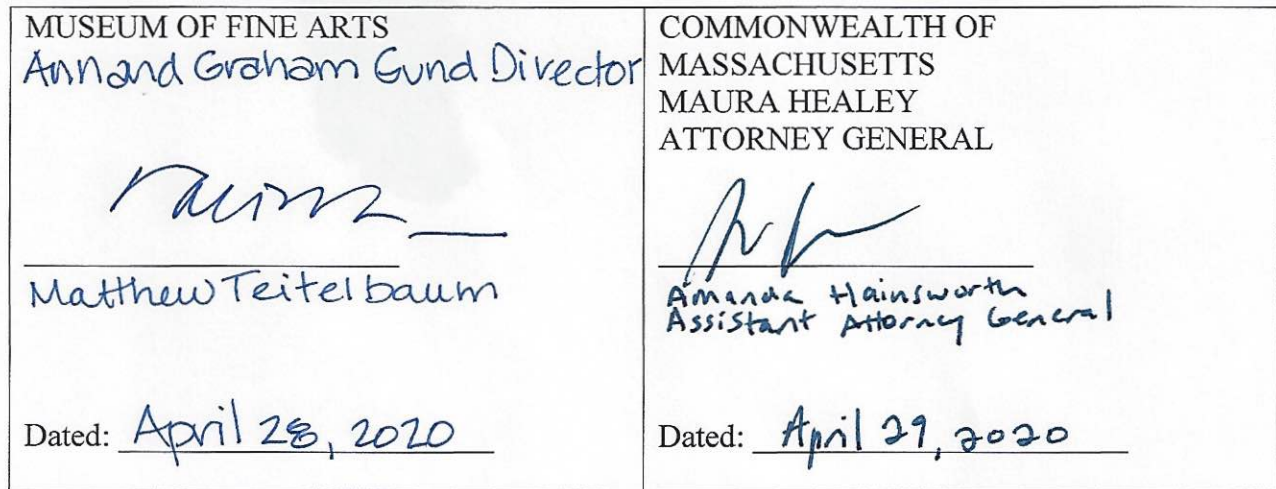 MUSEUM OF FINE ARTS
Ann and Graham Gund Director
Matthew Teitelbaum
Dated: April 28, 2020
COMMONWEALTH OF
MASSACHUSETTS
MAURA HEALEY
ATTORNEY GENERAL
Amanda Hainsworth
Assistant Attorney General
Dated: April 29, 2020